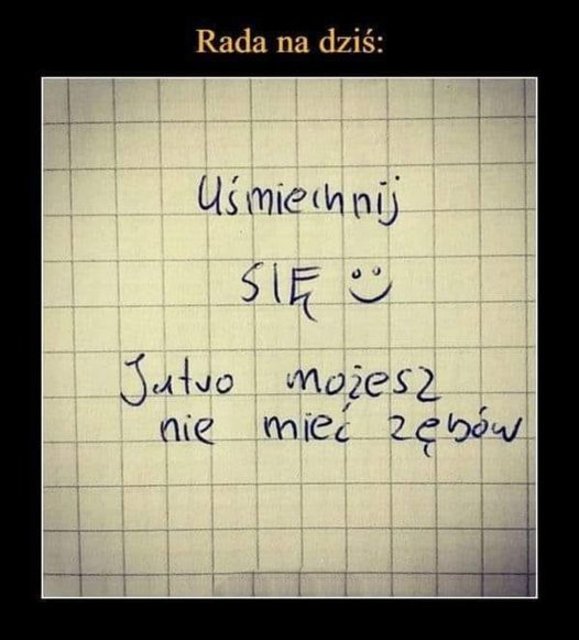 Rada na dziś:
Uśmiechnij
SIĘ
Jutro możesz
nie mieć zębów